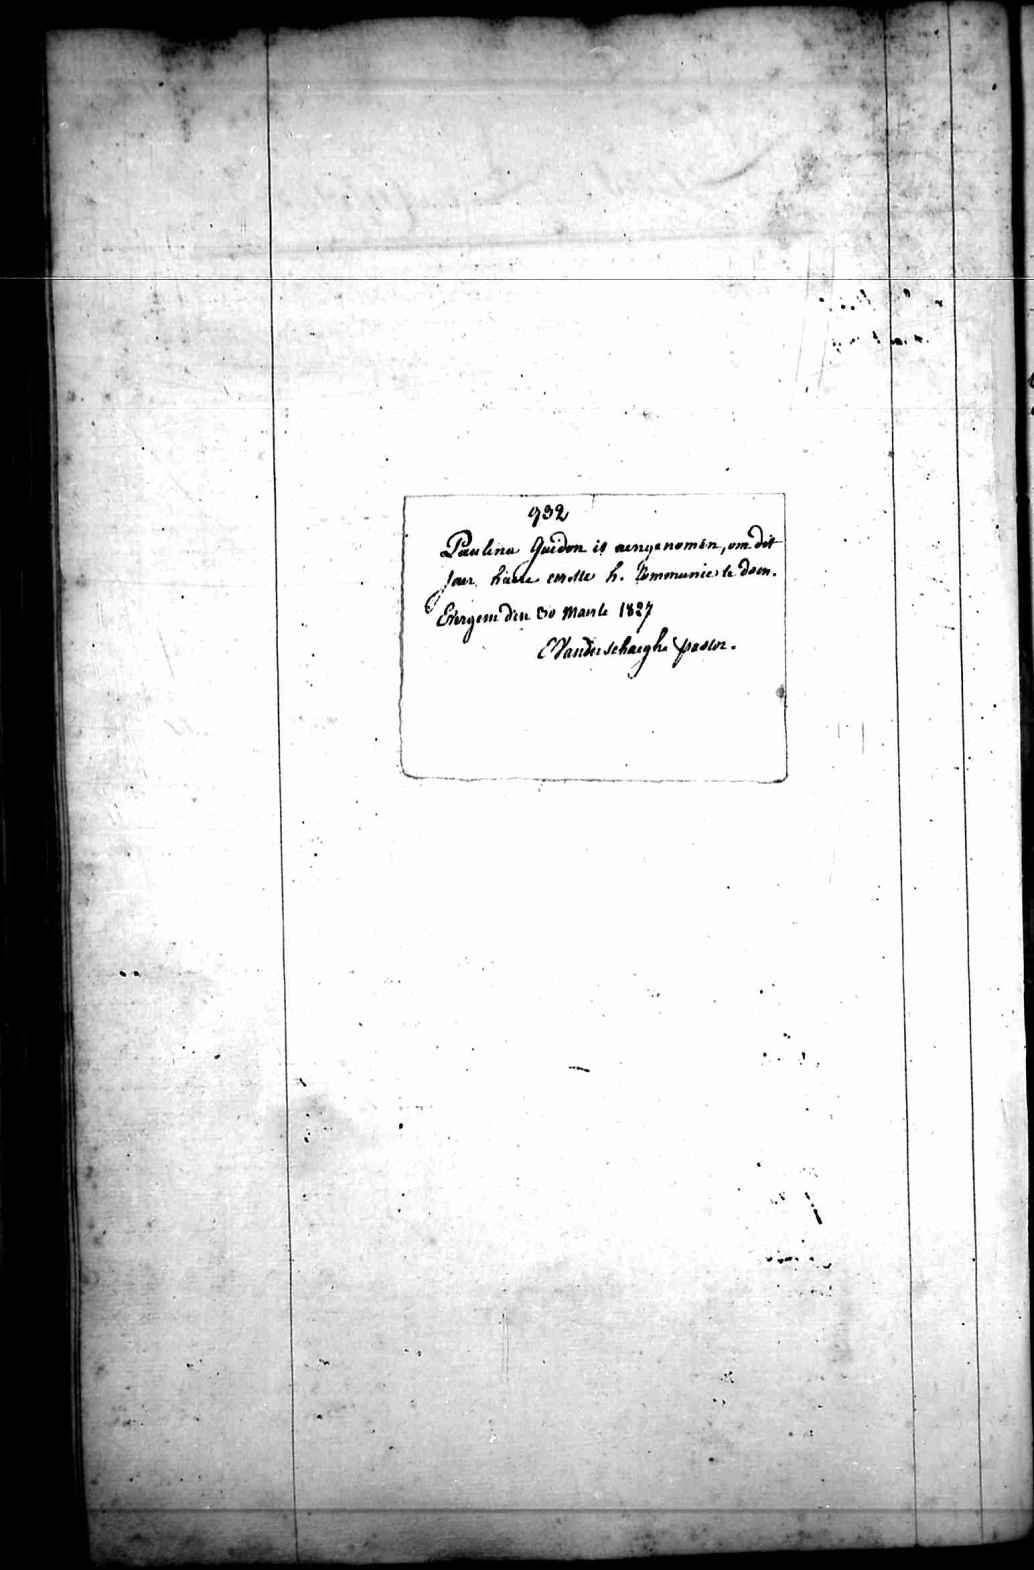 932
Paulina Guidon is aengenomen, om dit
Jaer haere eerste h. Communie te doen.
Evergem den 30 Maerte 1827
C Vanderschaeghe pastor.